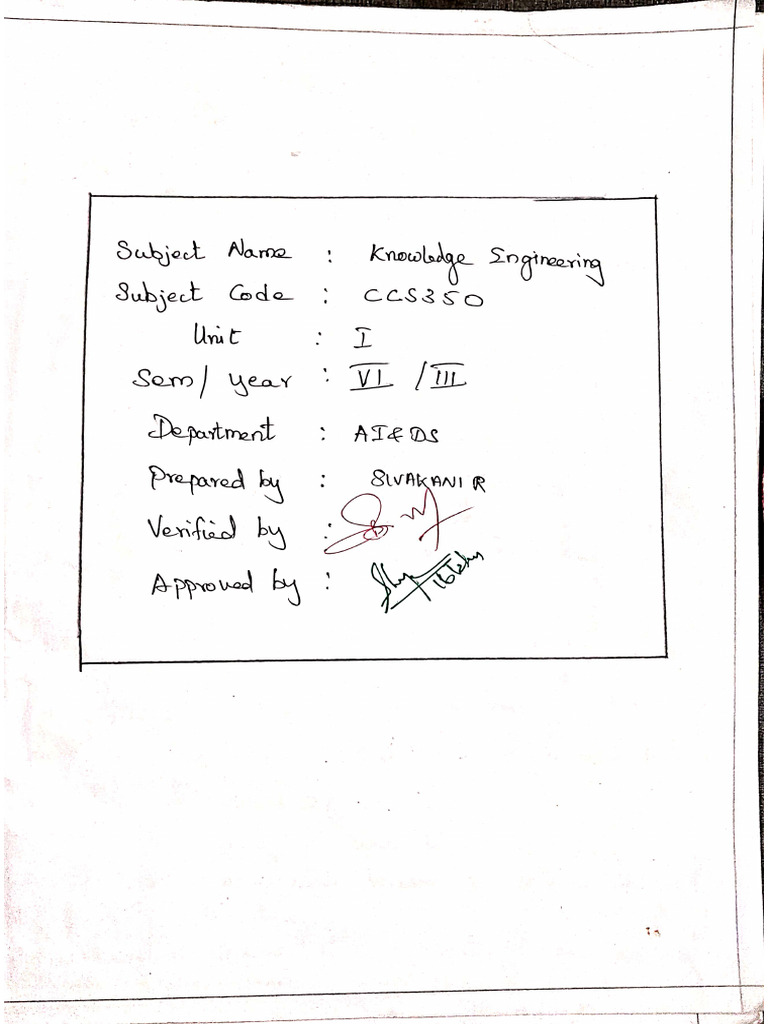 Subject Name : Knowledge Engineering
Subject Code : CCS350
Unit : I
Sem/ year : VI / III
Department : AI & DS
Prepared by : SIVAKANI R
Verified by :
Approved by :